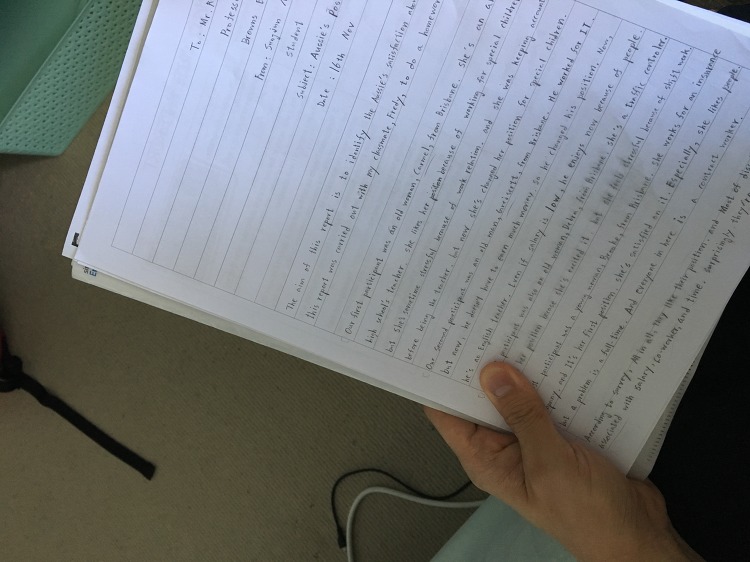 To : Mr.
Profess
Browns E
From : Sangdon
Student
Subject : Aussie's Pos
Date : 16th Nov
The aim of this report is to identify the Aussie's satisfaction abo
This report was carried out with my classmate, Fredy, to do a homework
Our first participant was an old woman, Carmel, from Brisbane. she's an as
high school's teacher. she likes her position because of working for special children
but she's sometime stressful because of work relation. and she was keeping account
before being the teacher. but now she's changed her position for special children.
Our second participant was an old man, from Brisbane. He worked for IT.
but now, he doesn't have to earn much money so he changed his position. Now,
he's an English teacher. Even if salary is low, he enjoys more because of people.
participant was also an old woman, Debra, from Brisbane, she's a traffic controller.
her position because she's suited it, but she feels stressful because of shift work.
participant was a young woman, from Brisbane, she works for an insurance
and it's her first position, she's satisfied on it. Especially, she likes people.
but a problem is a full-time. And everyone in here is a contact worker.
According to survey, All in all, they like their position. and Most of dis
associated with salary, co-worker, and time. Surprisingly they're